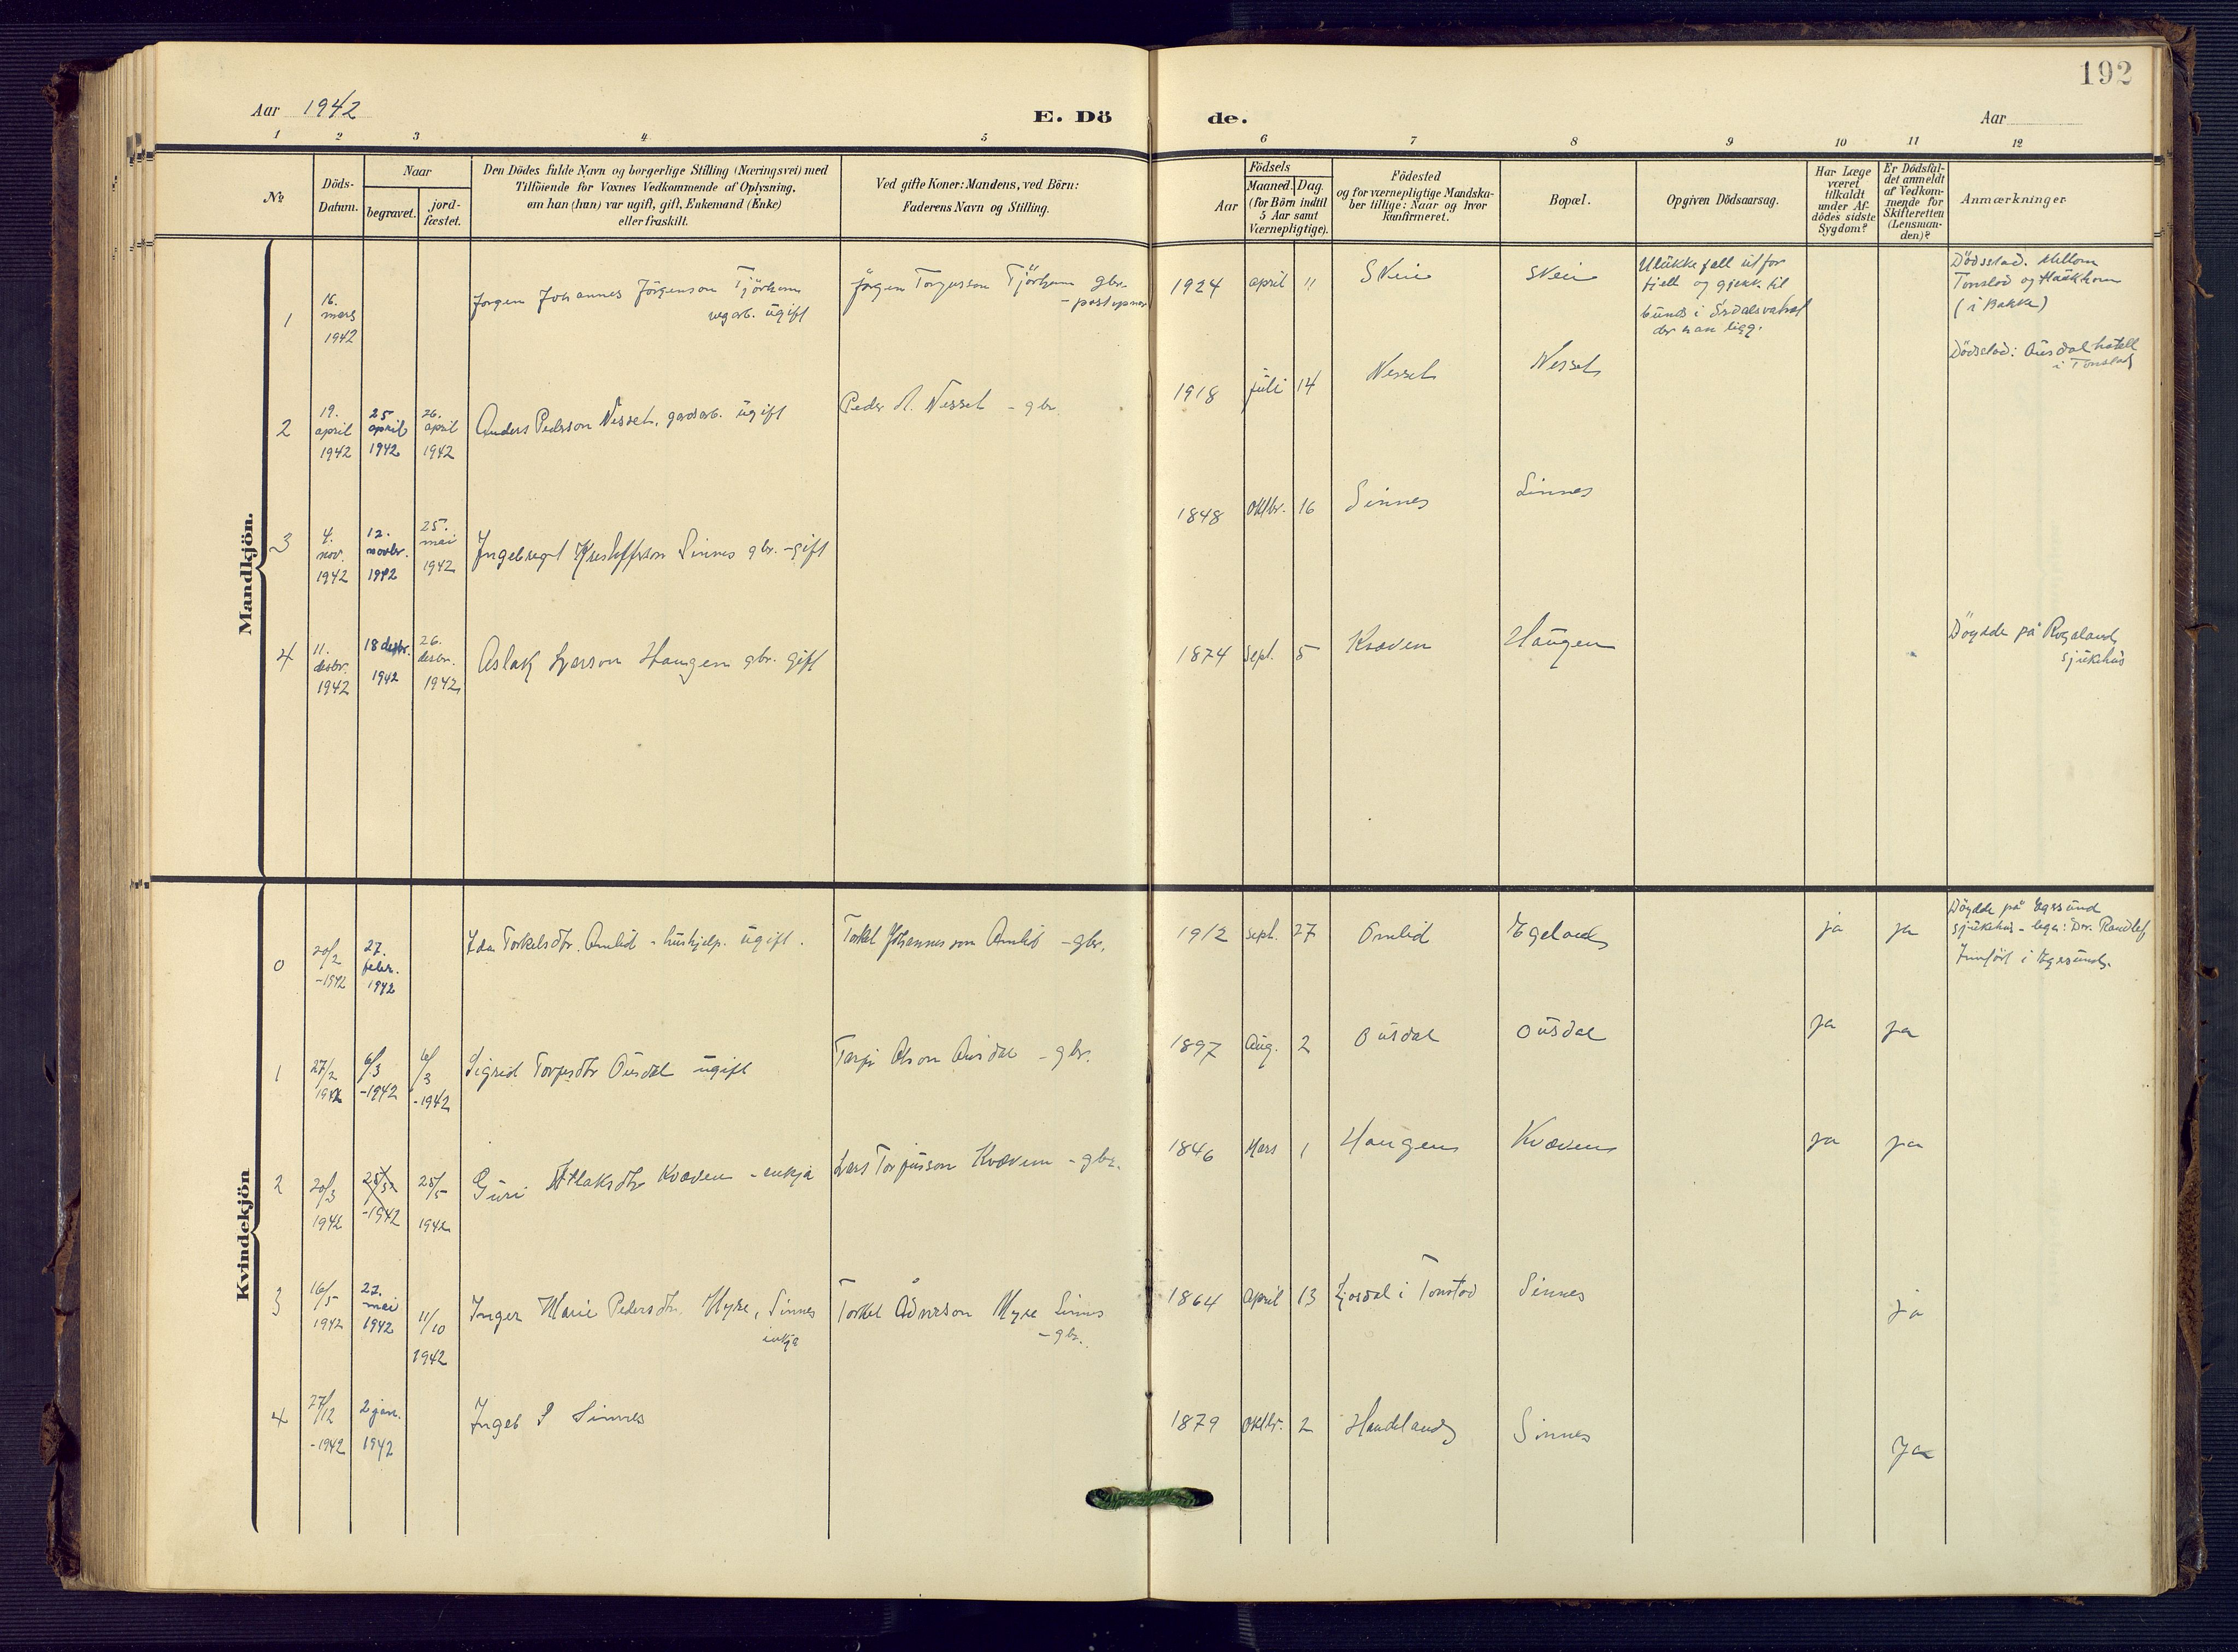 192
Aar 1942
E. Dö
de.
Aar
1 2 3 4 5 6 7 8 9 10 11 12
№
Döds-
Datum.
Naar
begravet.
jord-
fæstet.
Den Dödes fulde Navn og borgerlige Stilling (Næringsvei) med
Tilföiende for Voxnes Vedkommende af Oplysning,
om han (hun) var ugift, gift, Enkemand (Enke)
eller fraskilt.
Ved gifte Koner: Mandens, ved Börn:
Faderens Navn og Stilling.
Födsels
Aar
Maaned. Dag.
(for Börn indtil
5 Aar samt
Værnepligtige).
Födested
og for værnepligtige Mandska-
ber tillige: Naar og hvor
konfirmeret.
Bopæl.
Opgiven Dödsaarsag.
Har Læge
været
tilkaldt
under Af-
dödes sidste
Sygdom?
Er Dödsfal-
det anmeldt
af Vedkom-
mende for
Skifteretten
(Lensman-
den)?
Anmærkninger.
Mandkjön.
1
16.
mars
1942
Jörgen Johannes Jörgenson Tjörhom
vegarb. ugift
Jörgen Torgusson Tjörhom gbr.
- postopnar
1924 april 11 Skeie Skeie
Ulukke fall utfor
fjell og gjekk til
bunds i Sirdalsvatnet
der han ligg.
Dödsstad. Mellom
Tonstad og Haukhom
(i Bakke)
2
19.
april
1942
25
april
1942
26.
april
1942
Anders Pederson Nesset, gardsarb. ugift
Peder A. Nesset - gbr.
1918 juli 14 Nesset Nesset
Dödsstad: Ousdal hotell
i Tonstad
3
4.
nov.
1942
12.
novbr.
1942
25.
mai
1942
Ingebregt Kristoffson Sinnes gbr. - gift
1848 oktbr. 16 Sinnes Sinnes
4
11.
desbr.
1942
18 desbr.
1942
26.
desbr.
1942
Aslak Larson Haugen gbr. gift
1874 Sept. 5 Kvæven Haugen
Döydde på Rogaland
sjukehus
Kvindekjön
0
20/2
-1942
27.
febr.
1942
Ida Torkelsdtr. Omlid - hushjelp. ugift.
Torkel Johannesson Omlid - gbr.
1912 sept. 27 Omlid Egeland ja ja
Döydde på Egersund
sjukehus - lege: Dr.
Innfört i Egersund.
1
27/2
1942
6/3
-1942
6/3
-1942
Sigrid Torjusdtr Ousdal ugift
Torju Olson Ousdal - gbr.
1897 Aug. 2 Ousdal Ousdal ja ja
2
20/3
1942
25/5
-1942
25/5
1942
Guri Atlaksdtr Kvæven - enkja
Lars Torjusson Kvæven - gbr.
1846 Mars 1 Haugen Kvæven ja ja
3
16/5
1942
22.
mai
1942
11/10
1942
Inger Marie Pedersdtr. Myre, Sinnes
enkja
Torkel Ådneson Myre Sinnes
- gbr.
1864 April 13 Ljosdal i Tonstad Sinnes ja
4
27/12
-1942
2 jan.
1942
Ingeb S Sinnes
1879 oktbr. 2 Haudeland Sinnes Ja